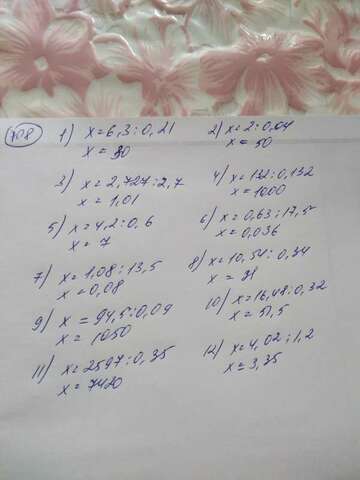 708 1) x=6,3:0,21
x=30
2) x=2:0,04
x=50
3) x=2,727:2,7
x=1,01
4) x=132:0,132
x=1000
5) x=4,2:0,6
x=7
6) x=0,63:17,5
x=0,036
7) x=1,08:13,5
x=0,08
8) x=10,54:0,34
x=31
9) x=94,5:0,09
x=1050
10) x=16,48:0,32
x=51,5
11) x=2597:0,35
x=7420
12) x=4,02:1,2
x=3,35